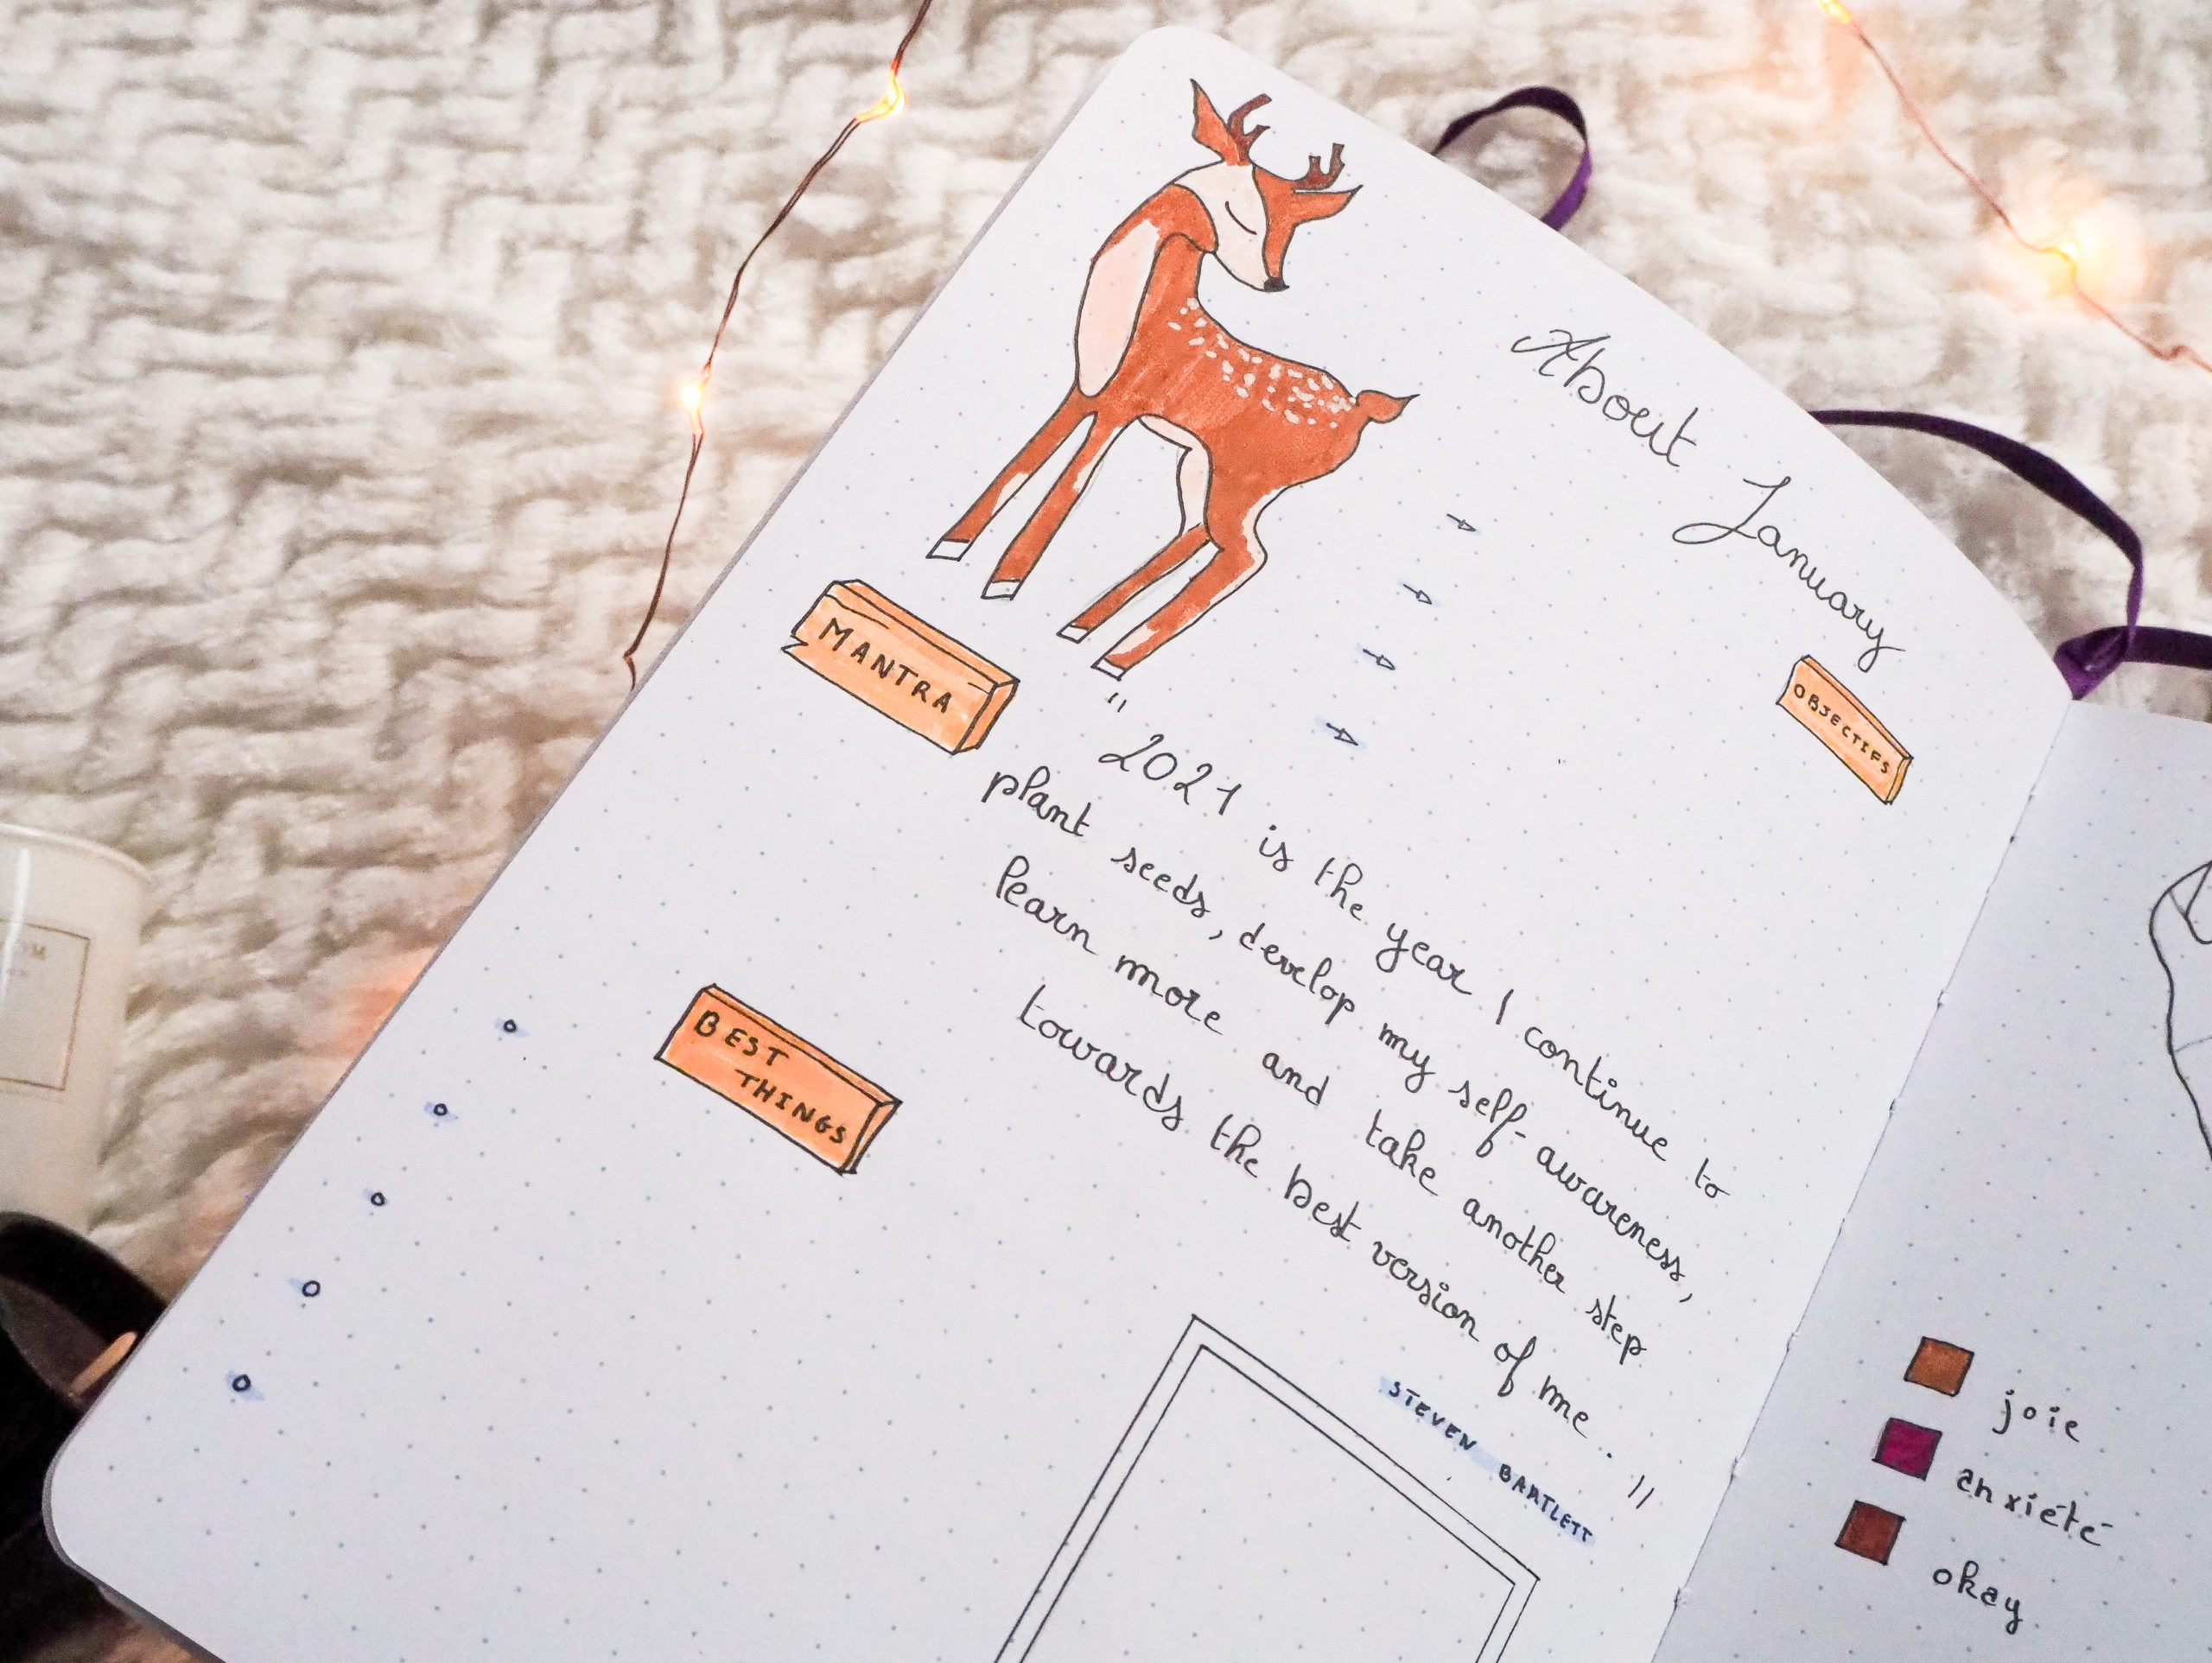 About January
OBJECTIFS
MANTRA
" 2021 is the year I continue to
plant seeds, develop my self-awareness,
learn more and take another step
towards the best version of me. "
STEVEN BARTLETT
BEST
THINGS
joie
anxiété
okay